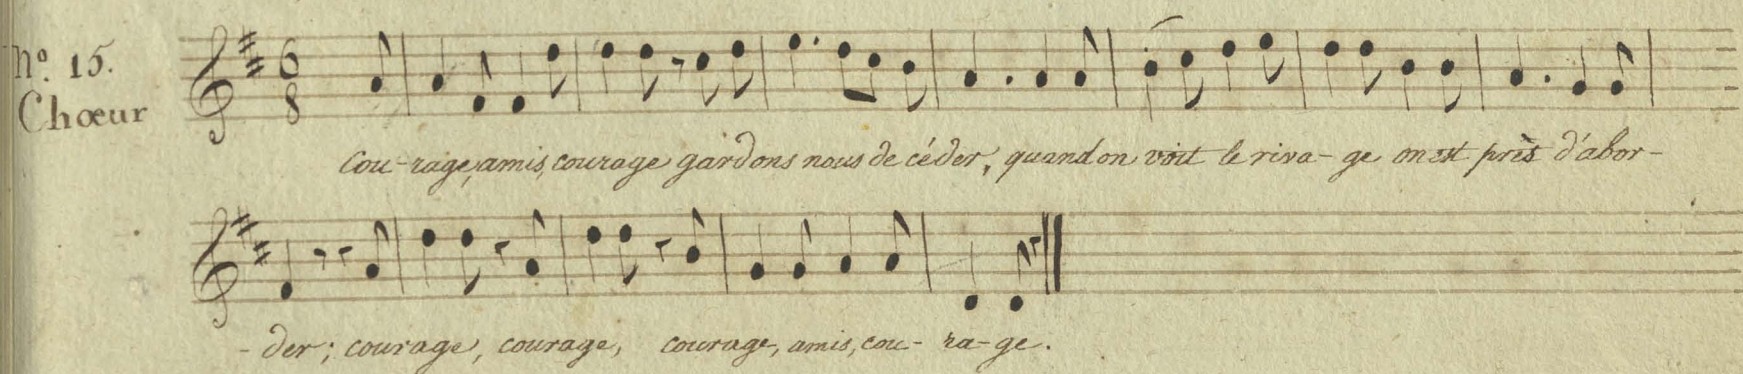 N.º 15.
Chœur
6
8
Cou-rage, amis, courage gardons nous de céder, quand on voit le riva-ge on est près d'abor-
-der; courage, courage, courage, amis, cou-ra-ge.